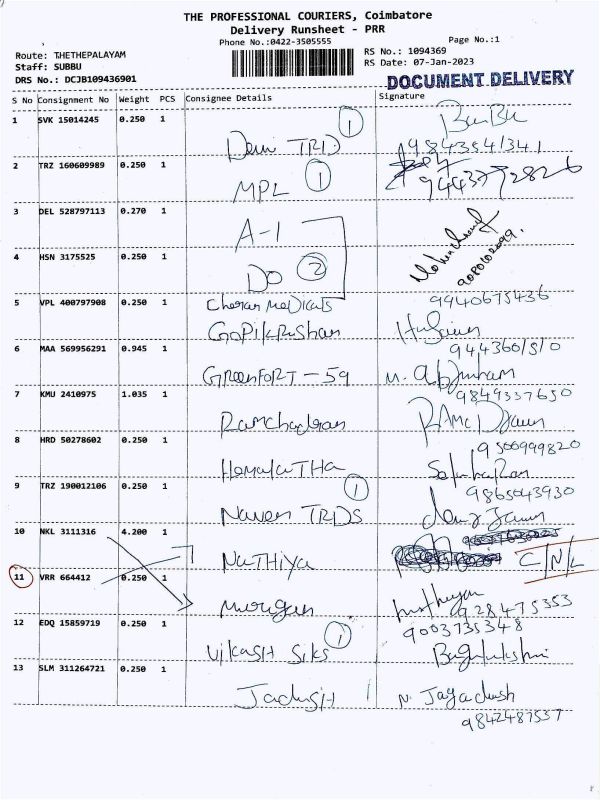 THE PROFESSIONAL COURIERS, Coimbatore
Delivery Runsheet - PRR
Phone No.:0422-3505555
Page No.:1
Route: THETHEPALAYAM
RS No.: 1094369
Staff: SUBBU
RS Date: 07-Jan-2023
DRS No.: DCJB109436901
DOCUMENT DELIVERY
S No Consignment No Weight PCS Consignee Details Signature
1 SVK 15014245 0.250 1
Devi TRD 1
9843541341
2 TRZ 160609989 0.250 1
MPL 1
3 DEL 528797113 0.270 1
A-1
4 HSN 3175525 0.250 1
DO 2
5 VPL 400797908 0.250 1
Cheran Medicals
9940675436
Gopikrushan
6 MAA 569956291 0.945 1
GreenFORT - 59
7 KMU 2410975 1.035 1
9849337650
Ramchadran
8 HRD 50278602 0.250 1
9500999820
HemalaTHA
9 TRZ 190012106 0.250 1
9865043930
Naven TRDS 1
10 NKL 3111316 4.200 1
NaTHiya
C/N/L
11 VRR 664412 0.250 1
Murigan
928475353
12 EDQ 15859719 0.250 1
9003735348
Vikash Siks 1
13 SLM 311264721 0.250 1
Jadish 1
N. Jagadish
9842487537